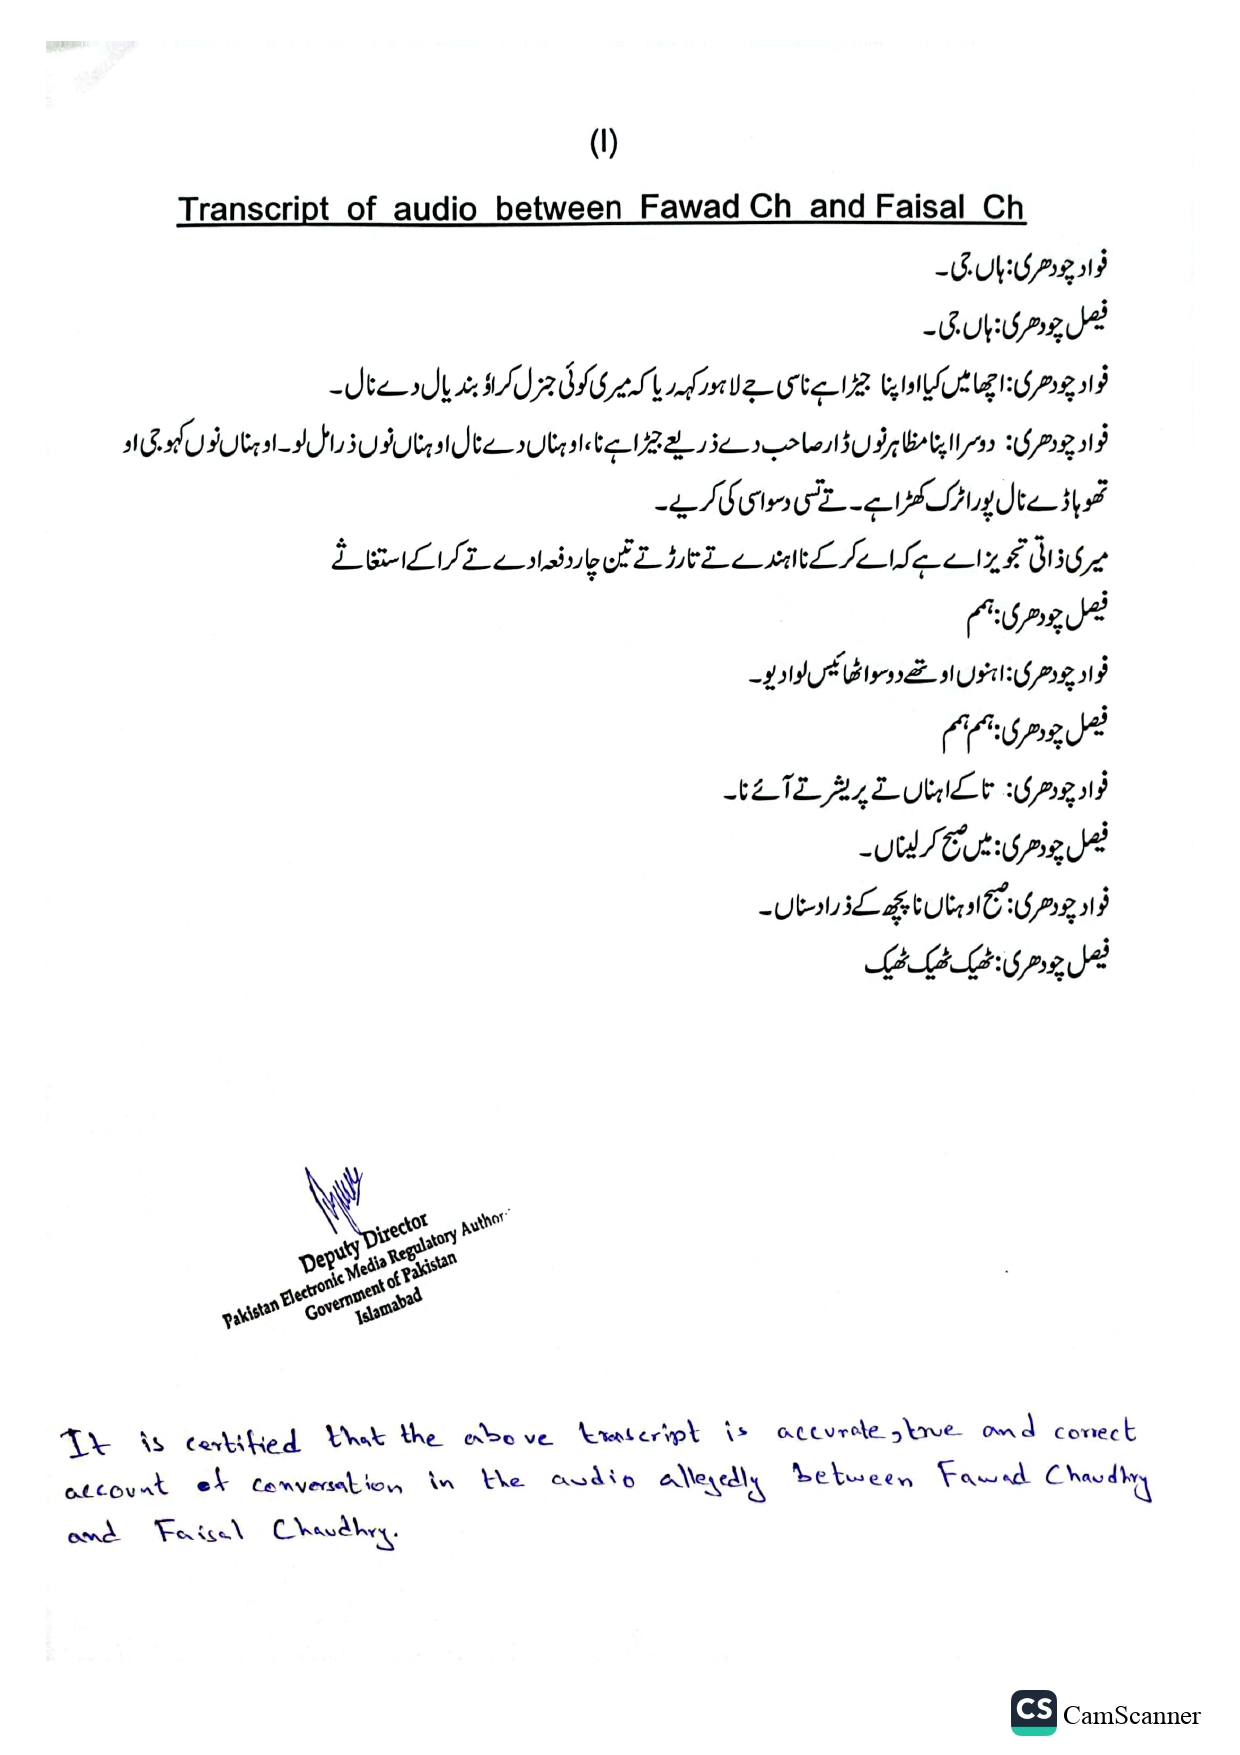 (I)
Transcript of audio between Fawad Ch and Faisal Ch
فواد چودھری: ہاں جی۔
فیصل چودھری: ہاں جی۔
فواد چودھری: اچھا میں کیا او اپنا جیڑا ہے نا سی جے لاہور کہہ ریا کہ میری کوئی جنزل کراؤ بندیال دے نال۔
فواد چودھری: دوسرا اپنا مظاہر نوں ڈار صاحب دے ذریعے جیڑا ہے نا، اوہناں دے نال اوہناں نوں ذرا مل لو۔ اوہناں نوں کہو جی او
تھوہاڈے نال پورا ٹرک کھڑا ہے۔ تے تسی دسو اسی کی کریے۔
میری ذاتی تجویز اے ہے کہ اے کر کے نا اہندے تے تارڑ تے تین چار دفعہ اودے تے کرا کے استغاثے
فیصل چودھری: ہمم
فواد چودھری: اہنوں اوتھے دو سو اٹھائیس لوا دیو۔
فیصل چودھری: ہمم ہمم
فواد چودھری: تاکے اہناں تے پریشر تے آئے نا۔
فیصل چودھری: میں صبح کر لیناں۔
فواد چودھری: صبح اوہناں نا پچھ کے ذرا دسناں۔
فیصل چودھری: ٹھیک ٹھیک ٹھیک
Deputy Director
Pakistan Electronic Media Regulatory Author
Government of Pakistan
Islamabad
It is certified that the above transcript is accurate, true and correct
account of conversation in the audio allegedly between Fawad Chaudhry
and Faisal Chaudhry.
CS CamScanner